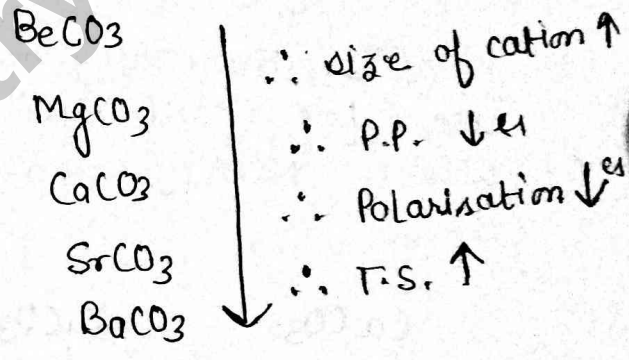 BeCO3
MgCO3
CaCO3
SrCO3
BaCO3
∴ size of cation ↑
∴ P.P. ↓es
∴ Polarisation ↓es
∴ T.S. ↑